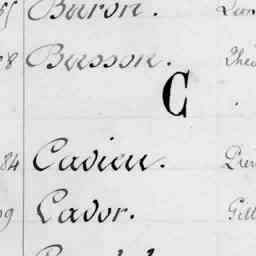 Baron. Leon
8 Busson. Théo
C
84 Cadieu. Pier
09 Cador. Gill